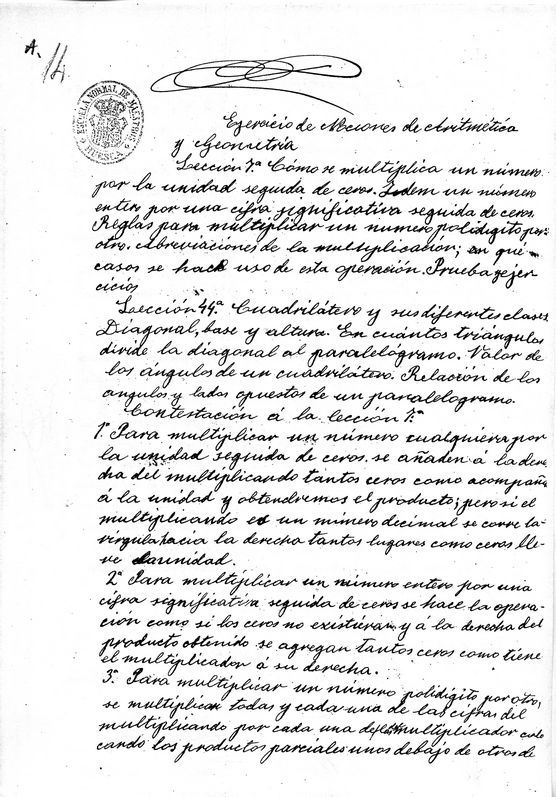 A.
14
ESCUELA NORMAL DE MAESTROS
HUESCA
Ejercicio de Nociones de Aritmética
y Geometría
Lección 7.ª Cómo se multiplica un número
por la unidad seguida de ceros. Idem un número
entero por una cifra significativa seguida de ceros.
Reglas para multiplicar un numero polidigito por
otro. Abreviaciones de la multiplicación; en qué
casos se hace uso de esta operación. Prueba y ejer
cicios
Lección 44.ª Cuadrilátero y sus diferentes clases
Diagonal, base y altura. En cuántos triángulos
divide la diagonal al paralelogramo. Valor de
los ángulos de un cuadrilátero. Relación de los
angulos y lados opuestos de un paralelogramo.
Contestación á la lección 7.ª
1.º Para multiplicar un número cualquiera por
la unidad seguida de ceros se añaden á la dere
cha del multiplicando tantos ceros como acompañe
á la unidad y obtendremos el producto; pero si el
multiplicando es un número decimal se corre la
vírgula hacia la derecha tantos lugares como ceros lle-
ve la unidad.
2.º Para multiplicar un número entero por una
cifra significativa seguida de ceros se hace la opera-
ción como si los ceros no existieran y á la derecha del
producto obtenido se agregan tantos ceros como tiene
el multiplicador á su derecha.
3.º Para multiplicar un número polidigito por otro,
se multiplican todas y cada una de las cifras del
multiplicando por cada una del multiplicador colo
cando los productos parciales unos debajo de otros de